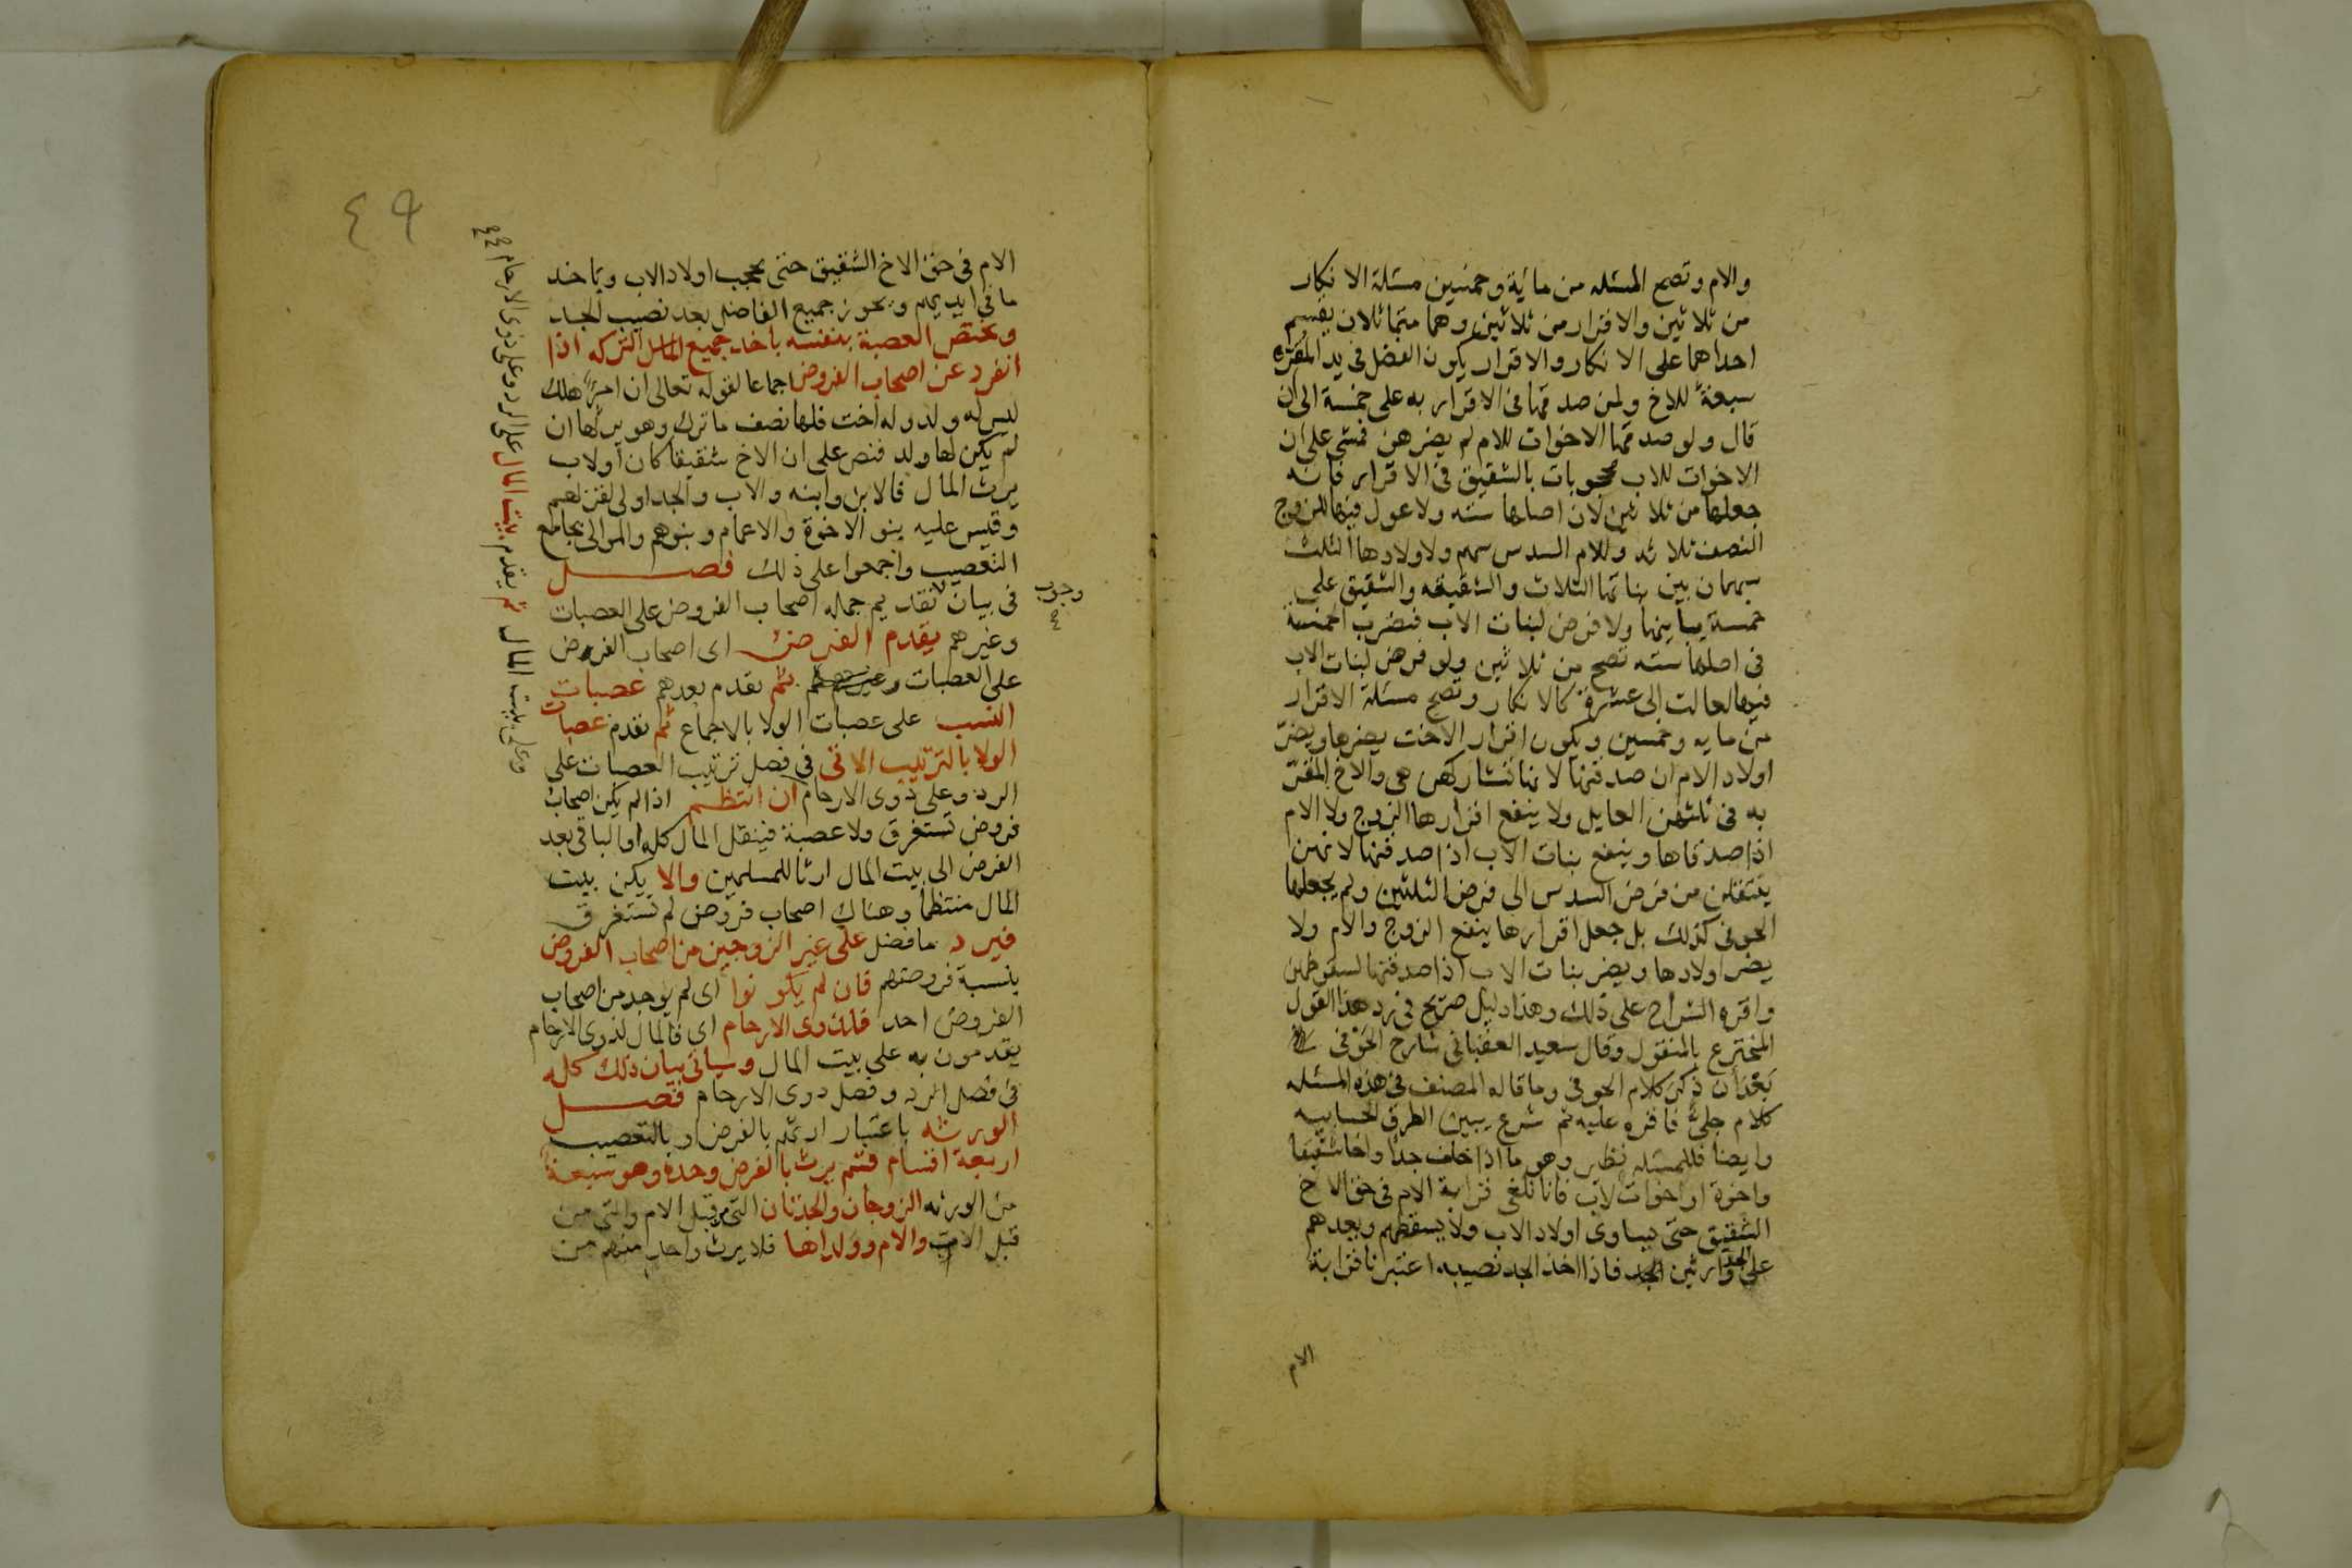 والام وتصح المسئله من مائية وخمسين مسئلة الانكار
من ثلاثين والاقرار من ثلاثين وهما متماثلان يقسم
احداهما على الانكار والاقرار يكون الفضل في يد المقره
سبعة للاخ ولمن صدقها في الاقرار به على خمسة الى ان
قال ولو صدقها الاخوات للام لم يضرهن فمشى على ان
الاخوات للاب محجوبات بالشقيق في الاقرار فانه
جعلها من ثلاثين لان اصلها سته ولا عول فيها للزوج
النصف ثلاثه وللام السدس سهم ولاولادها الثلث
سهمان بين بناتها الثلاث والشقيقه والشقيق على
خمسة يباينها ولا فرض لبنات الاب فتضرب الخمسة
في اصلها سته تصح من ثلاثين ولو فرض لبنات الاب
فيها لعالت الى عشرة كالانكار وتصح مسئلة الاقرار
من مايه وخمسين ويكون اقرار الاخت يضرها ويضرّ
اولاد الام ان صدقنها لانها تشاركهن هي والاخ المقرّ
به في ثلثهن العايل ولا ينفع اقرارها الزوج ولا الام
اذا صدقاها وينفع بنات الاب اذا صدقنها لانهن
ينتقلن من فرض السدس الى فرض الثلثين ولم يجعلها
الحوفي كذلك بل جعل اقرارها ينفع الزوج والام ولا
يضر اولادها ويضر بنات الاب اذا صدقنها لسقوطهن
واقره الشراح على ذلك وهذا دليل صريح في رد هذا القول
المخترع بالمنقول وقال سعيد العقباني شارح الحوفي
بعد أن ذكر كلام الحوفي وما قاله المصنف في هذه المسئله
كلام جليّ فاقره عليه ثم شرع يبين الطرق الحسابيه
وايضا فللمسئله نظير وهو ما اذا خلف جدا واخا شقيقا
واخوة او اخوات لاب فانا نلغي قرابة الام في حق الاخ
الشقيق حتى يساوى اولاد الاب ولا يسقطهم ويعدهم
على الجد وارثين فاذا اخذ الجد نصيبه اعتبرنا قرابة
الام
٤٩
الام في حق الاخ الشقيق حتى يحجب اولاد الاب وياخذ
ما في ايديهم ويحوز جميع الفاضل بعد نصيب الجد
ويختص العصبة بنفسه باخذ جميع التركه اذا
انفرد عن اصحاب الفروض اجماعا لقوله تعالى ان امرؤ هلك
ليس له ولد وله اخت فلها نصف ما ترك وهو يرثها ان
لم يكن لها ولد فنص على ان الاخ شقيقا كان أو لاب
يرث المال فالابن وابنه والاب والجد اولى لقربهم
وقيس عليه بنو الاخوة والاعمام وبنوهم والموالى بجامع
التعصيب واجمعوا على ذلك فصل
وجوب
في بيان تقديم جمله اصحاب الفروض على العصبات
وغيرهم يقدم الفرض اى اصحاب الفروض
على العصبات ثم تقدم بعدهم عصبات
النسب على عصبات الولا بالاجماع ثم تقدم عصبات
الولا بالترتيب الاتى في فصل ترتيب العصبات على
الرد وعلى ذوى الارحام ان انتظم اذا لم يكن اصحاب
فروض تستغرق ولا عصبة فينقل المال كله او الباقي بعد
الفرض الى بيت المال ارثا للمسلمين والا يكن بيت
المال منتظما وهناك اصحاب فروض لم تستغرق
فيرد ما فضل على غير الزوجين من اصحاب الفروض
بنسبة فروضهم فان لم يكونوا اى لم يوجد من اصحاب
الفروض احد فلذوى الارحام اي فالمال لذوى الارحام
يقدمون به على بيت المال وسياتى بيان ذلك كله
في فصل الرد وفصل ذوى الارحام فصل
الورثه باعتبار ارثهم بالفرض او بالتعصيب
اربعة اقسام قسم يرث بالفرض وحده وهو سبعة
من الورثه الزوجان والجدتان التي من قبل الام والتي من
قبل الاب والام وولداها فلا يرث واحد منهم من
وعلى بيت المال ثم يقدم بيت المال على الرد وعلى ذوى الارحام